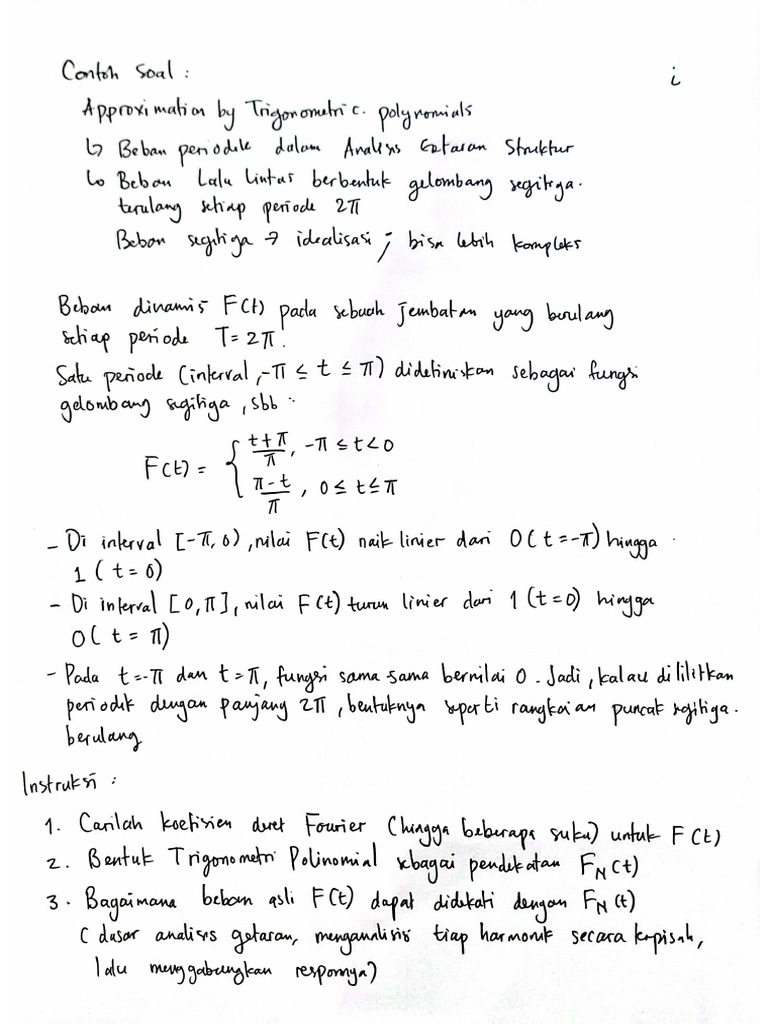 Contoh Soal :
i
Approximation by Trigonometric. polynomials
↳ Beban periodik dalam Analisis Getaran Struktur
↳ Beban Lalu lintas berbentuk gelombang segitiga.
terulang setiap periode 2π
Beban segitiga → idealisasi ; bisa lebih kompleks
Beban dinamis F(t) pada sebuah jembatan yang berulang
setiap periode T = 2π.
Satu periode (interval, -π ≤ t ≤ π) didefiniskan sebagai fungsi
gelombang segitiga, sbb :
F(t) = { (t+π)/π, -π ≤ t < 0
(π-t)/π, 0 ≤ t ≤ π
- Di interval [-π, 0), nilai F(t) naik linier dari 0 (t = -π) hingga
1 (t = 0)
- Di interval [0, π], nilai F(t) turun linier dari 1 (t = 0) hingga
0 (t = π)
- Pada t = -π dan t = π, fungsi sama-sama bernilai 0. Jadi, kalau dililitkan
periodik dengan panjang 2π, bentuknya seperti rangkaian puncak segitiga.
berulang
Instruksi :
1. Carilah koefisien deret Fourier (hingga beberapa suku) untuk F(t)
2. Bentuk Trigonometri Polinomial sebagai pendekatan F_N(t)
3. Bagaimana beban asli F(t) dapat didekati dengan F_N(t)
(dasar analisis getaran, menganalisis tiap harmonik secara terpisah,
lalu menggabungkan responnya)